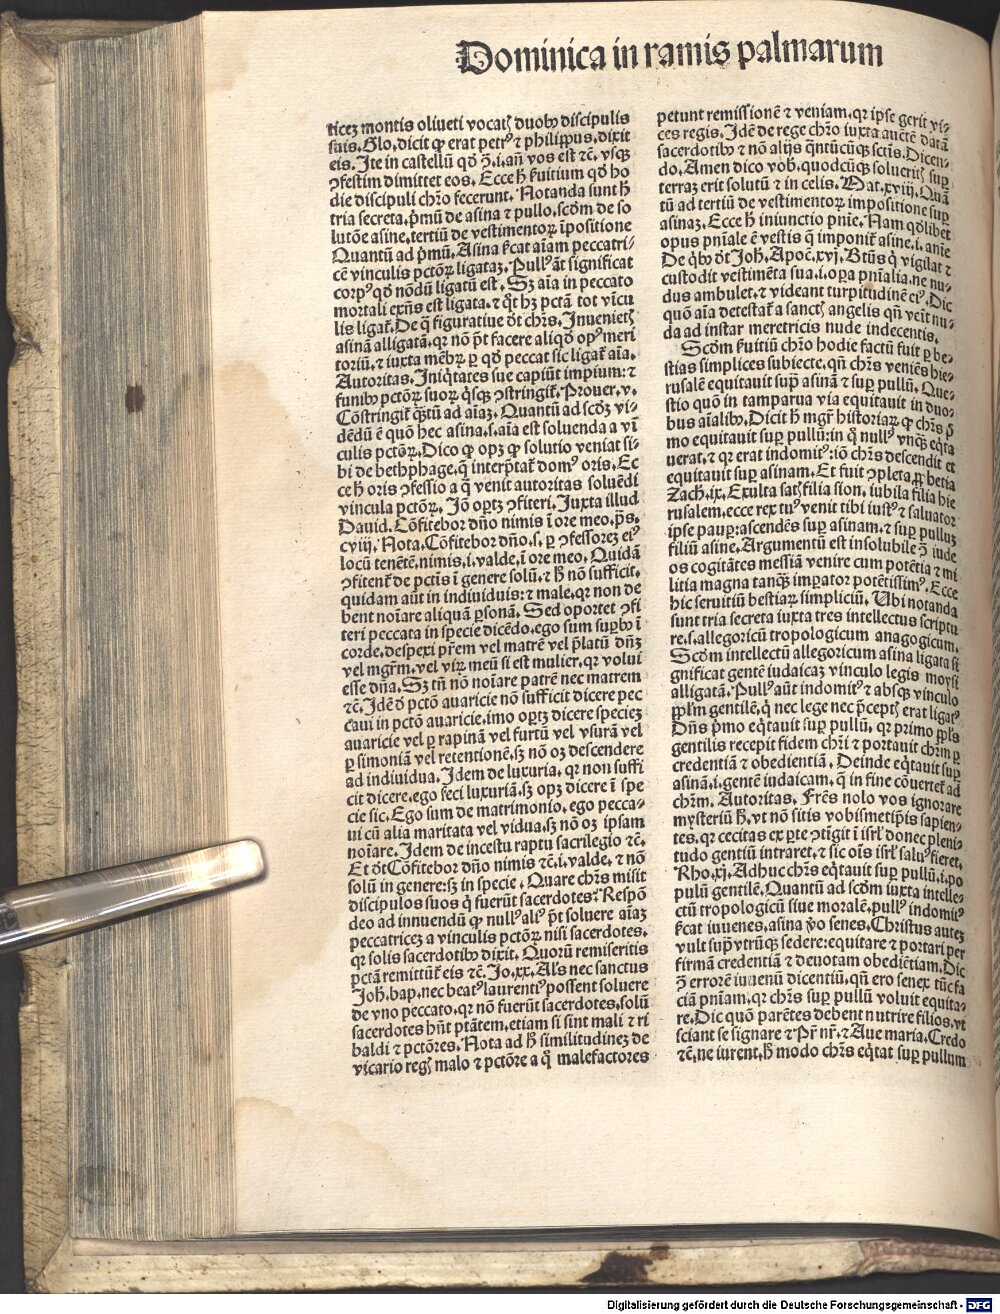 Dominica in ramis palmarum
ticeʒ montis oliueti vocatꝭ duobꝰ discipulis
suis. Glo. dicit ꝙ erat petrꝰ ⁊ philippus. dixit
eis. Ite in castellū qd̄ ꝯ̄. i. aū vos est ⁊c̄. vsqꝫ
ꝯfestim dimittet eos. Ecce h̄ ẜuitium qd̄ ho
die discipuli chr̄o fecerunt. Notanda sunt h̄
tria secreta. p̄mū de asina ⁊ pullo. scd̄m de so
lutōe asine. tertiū de vestimentoꝝ īpositione
Quantū ad p̄mū. Asina ſ̄cat aīam peccatri⸗
cē vinculis pctōꝝ ligataꝫ. Pullꝰ āt significat
corpꝰ qd̄ nōdū ligatū est. Sꝫ aīa in peccato
mortali exn̄s est ligata. ⁊ q̄t hꝫ pctā tot vīcu
lis ligat̄. De q̄ figuratiue dt̄ chr̄s. Inuenietꝭ
asinā alligatā. qꝛ nō p̄t facere aliqd̄ opꝰ meri
toriū. ⁊ iuxta mēbꝝ ꝑ qd̄ peccat sic ligat̄ aīa.
Autoritas. Iniq̄tates sue capiūt impium: ⁊
funibꝰ pctōꝝ suoꝝ q̄sqꝫ ꝯstringit̄. Prouer. v.
Cōstringit̄ q̄stū ad aīaꝫ. Quantū ad scd̄ꝫ vi⸗
dēdū ē quō hec asina. s. aīa est soluenda a vī
culis pctōꝝ. Dico ꝙ opꝫ ꝙ solutio veniat si⸗
bi de bethphage. q̄ interp̄tat̄ domꝰ oris. Ec
ce h̄ oris ꝯfessio a q̄ venit autoritas soluēdi
vincula pctōꝝ. Iō oportꝫ ꝯfiteri. Iuxta illud
Dauid. Cōfitebor dn̄o nimis ī ore meo. p̄s.
cviij. Nota. Cōfitebor dn̄o. s. ꝑ ꝯfessoreꝫ eiꝰ
locū tenētē. nimis. i. valde. ī ore meo. Quidā
ꝯfitent̄ de pctīs ī genere solū. ⁊ h̄ nō sufficit.
quidam aūt in indiuiduis: ⁊ male. qꝛ non de
bent noīare aliquā ꝑsonā. Sed oportet ꝯfi
teri peccata in specie dicēdo. ego sum suꝑbꝰ ī
corde. despexi pr̄em vel matrē vel p̄latū dn̄ꝫ
vel mgr̄m. vel virꝫ meū si est mulier. qꝛ volui
esse dn̄a. Sꝫ tn̄ nō noīare patrē nec matrem
⁊c̄. Idē d̄ pctō auaricie nō sufficit dicere pec
caui in pctō auaricie. imo oportꝫ dicere specieꝫ
auaricie vel ꝑ rapinā vel furtū vel vsurā vel
ꝑ simoniā vel retentionē. sꝫ nō oꝫ descendere
ad indiuidua. Idem de luxuria. qꝛ non suffi
cit dicere. ego feci luxuriā. sꝫ opꝫ dicere ī spe
cie sic. Ego sum de matrimonio. ego pecca⸗
ui cū alia maritata vel vidua. sꝫ nō oꝫ ipsam
noīare. Idem de incestu raptu sacrilegio ⁊c̄.
Et dt̄ Cōfitebor dn̄o nimis ⁊c̄. i. valde. ⁊ nō
solū in genere: sꝫ in specie. Quare chr̄s misit
discipulos suos q̄ fuerūt sacerdotes? Respō
deo ad innuendū ꝙ nullꝰ aliꝰ p̄t soluere aīaꝫ
peccatriceꝫ a vinculis pctōꝝ nisi sacerdotes.
qꝛ solis sacerdotibꝰ dixit. Quorū remiseritis
pctā remittūt̄ eis ⁊c̄. Io. xx. Als̄ nec sanctus
Joh̄. bap. nec beatꝰ laurentꝰ possent soluere
de vno peccato. qꝛ nō fuerūt sacerdotes. solū
sacerdotes hn̄t ptātem. etiam si sint mali ⁊ ri
baldi ⁊ pctōres. Nota ad h̄ similitudineꝫ de
vicario regꝭ malo ⁊ pctōre a q̄ malefactores
petunt remissionē ⁊ veniam. qꝛ ipse gerit vi⸗
ces regis. Idē de rege chr̄o iuxta auctē datā
sacerdotibꝰ ⁊ nō alijs q̄ntūcūqꝫ sctīs. Dicen⸗
do. Amen dico vob̄. quodcūqꝫ solueritꝭ suꝑ
terraꝫ erit solutū ⁊ in celis. Mat. xviij. Quā
tū ad tertiū de vestimentoꝝ impositione suꝑ
asinaꝫ. Ecce h̄ iniunctio pn̄ie. Nam qd̄libet
opus pn̄iale ē vestis q̄ imponit̄ asine. i. anīe
De q̄bꝰ dt̄ Joh̄. Apoc. xvj. Btūs q̄ vigilat ⁊
custodit vestimēta sua. i. oꝑa pn̄ialia. ne nu⸗
dus ambulet. ⁊ videant turpitudinē eiꝰ. Dic
quō aīa detestat̄ a sanctꝭ angelis qn̄ veīt nu⸗
da ad instar meretricis nude indecentis.
Scd̄m ẜuitiū chr̄o hodie factū fuit ꝑ be⸗
stias simplices subiecte. qn̄ chr̄s veniēs hie⸗
rusalē equitauit suꝑ asinā ⁊ suꝑ pullū. Que⸗
stio quō in tam parua via equitauit in duo⸗
bus aīalibꝰ. Dicit h̄ mgr̄ historiaꝝ ꝙ chr̄s p̄
mo equitauit suꝑ pullū: in q̄ nullꝰ vnqꝫ eq̄ta
uerat. ⁊ qꝛ erat indomitꝰ: iō chr̄s descendit et
equitauit suꝑ asinam. Et fuit ꝯpleta ꝓphetia
Zach. ix. Exulta satꝭ filia sion. iubila filia hie
rusalem. ecce rex tuꝰ venit tibi iustꝰ ⁊ saluator
ipse pauꝑ: ascendēs suꝑ asinam. ⁊ suꝑ pulluꝫ
filiū asine. Argumentū est insolubile ꝯ̄ iude
os cogitātes messiā venire cum potētia ⁊ mi
litia magna tanqꝫ imꝑator potētissimꝰ. Ecce
hic seruitiū bestiaꝝ simpliciū. Ubi notanda
sunt tria secreta iuxta tres intellectus scriptu
re. s. allegoricū tropologicum anagogicum.
Scd̄m intellectū allegoricum asina ligata si
gnificat gentē iudaicaꝫ vinculo legis moysi
alligatā. Pullꝰ aūt indomitꝰ ⁊ absqꝫ vinculo
ppl̄m gentilē. q̄ nec lege nec p̄ceptꝭ erat ligatꝰ
Dn̄s p̄mo eq̄tauit suꝑ pullū. qꝛ primo ppl̄s
gentilis recepit fidem chr̄i ⁊ portauit chr̄m ꝑ
credentiā ⁊ obedientiā. Deinde eq̄tauit suꝑ
asinā. i. gentē iudaicam. q̄ in fine cōuertet̄ ad
chr̄m. Autoritas. Frēs nolo vos ignorare
mysteriū h̄. vt nō sitis vobismetip̄is sapien⸗
tes. qꝛ cecitas ex ꝑte ꝯtīgit ī isrl̄ donec pleni⸗
tudo gentiū intraret. ⁊ sic oīs isrl̄ saluꝰ fieret.
Rho. xj. Adhuc chr̄s eq̄tauit suꝑ pullū. i. po
pulū gentilē. Quantū ad scd̄m iuxta intelle⸗
ctū tropologicū siue moralē. pullꝰ indomitꝰ
ſ̄cat iuuenes. asina v̄o senes. Christus auteꝫ
vult suꝑ vtrūqꝫ sedere: equitare ⁊ portari per
firmā credentiā ⁊ deuotam obediētiam. Dic
ꝯ̄ errorē iuuenū dicentiū. qn̄ ero senex tūc fa
ciā pn̄iam. qꝛ chr̄s suꝑ pullū voluit equita⸗
re. Dic quō parētes debent nutrire filios. vt
sciant se signare ⁊ Pr̄ nr̄. ⁊ Aue maria. Credo
⁊c̄. ne iurent. h̄ modo chr̄s eq̄tat suꝑ pullum
Digitalisierung gefördert durch die Deutsche Forschungsgemeinschaft - DFG